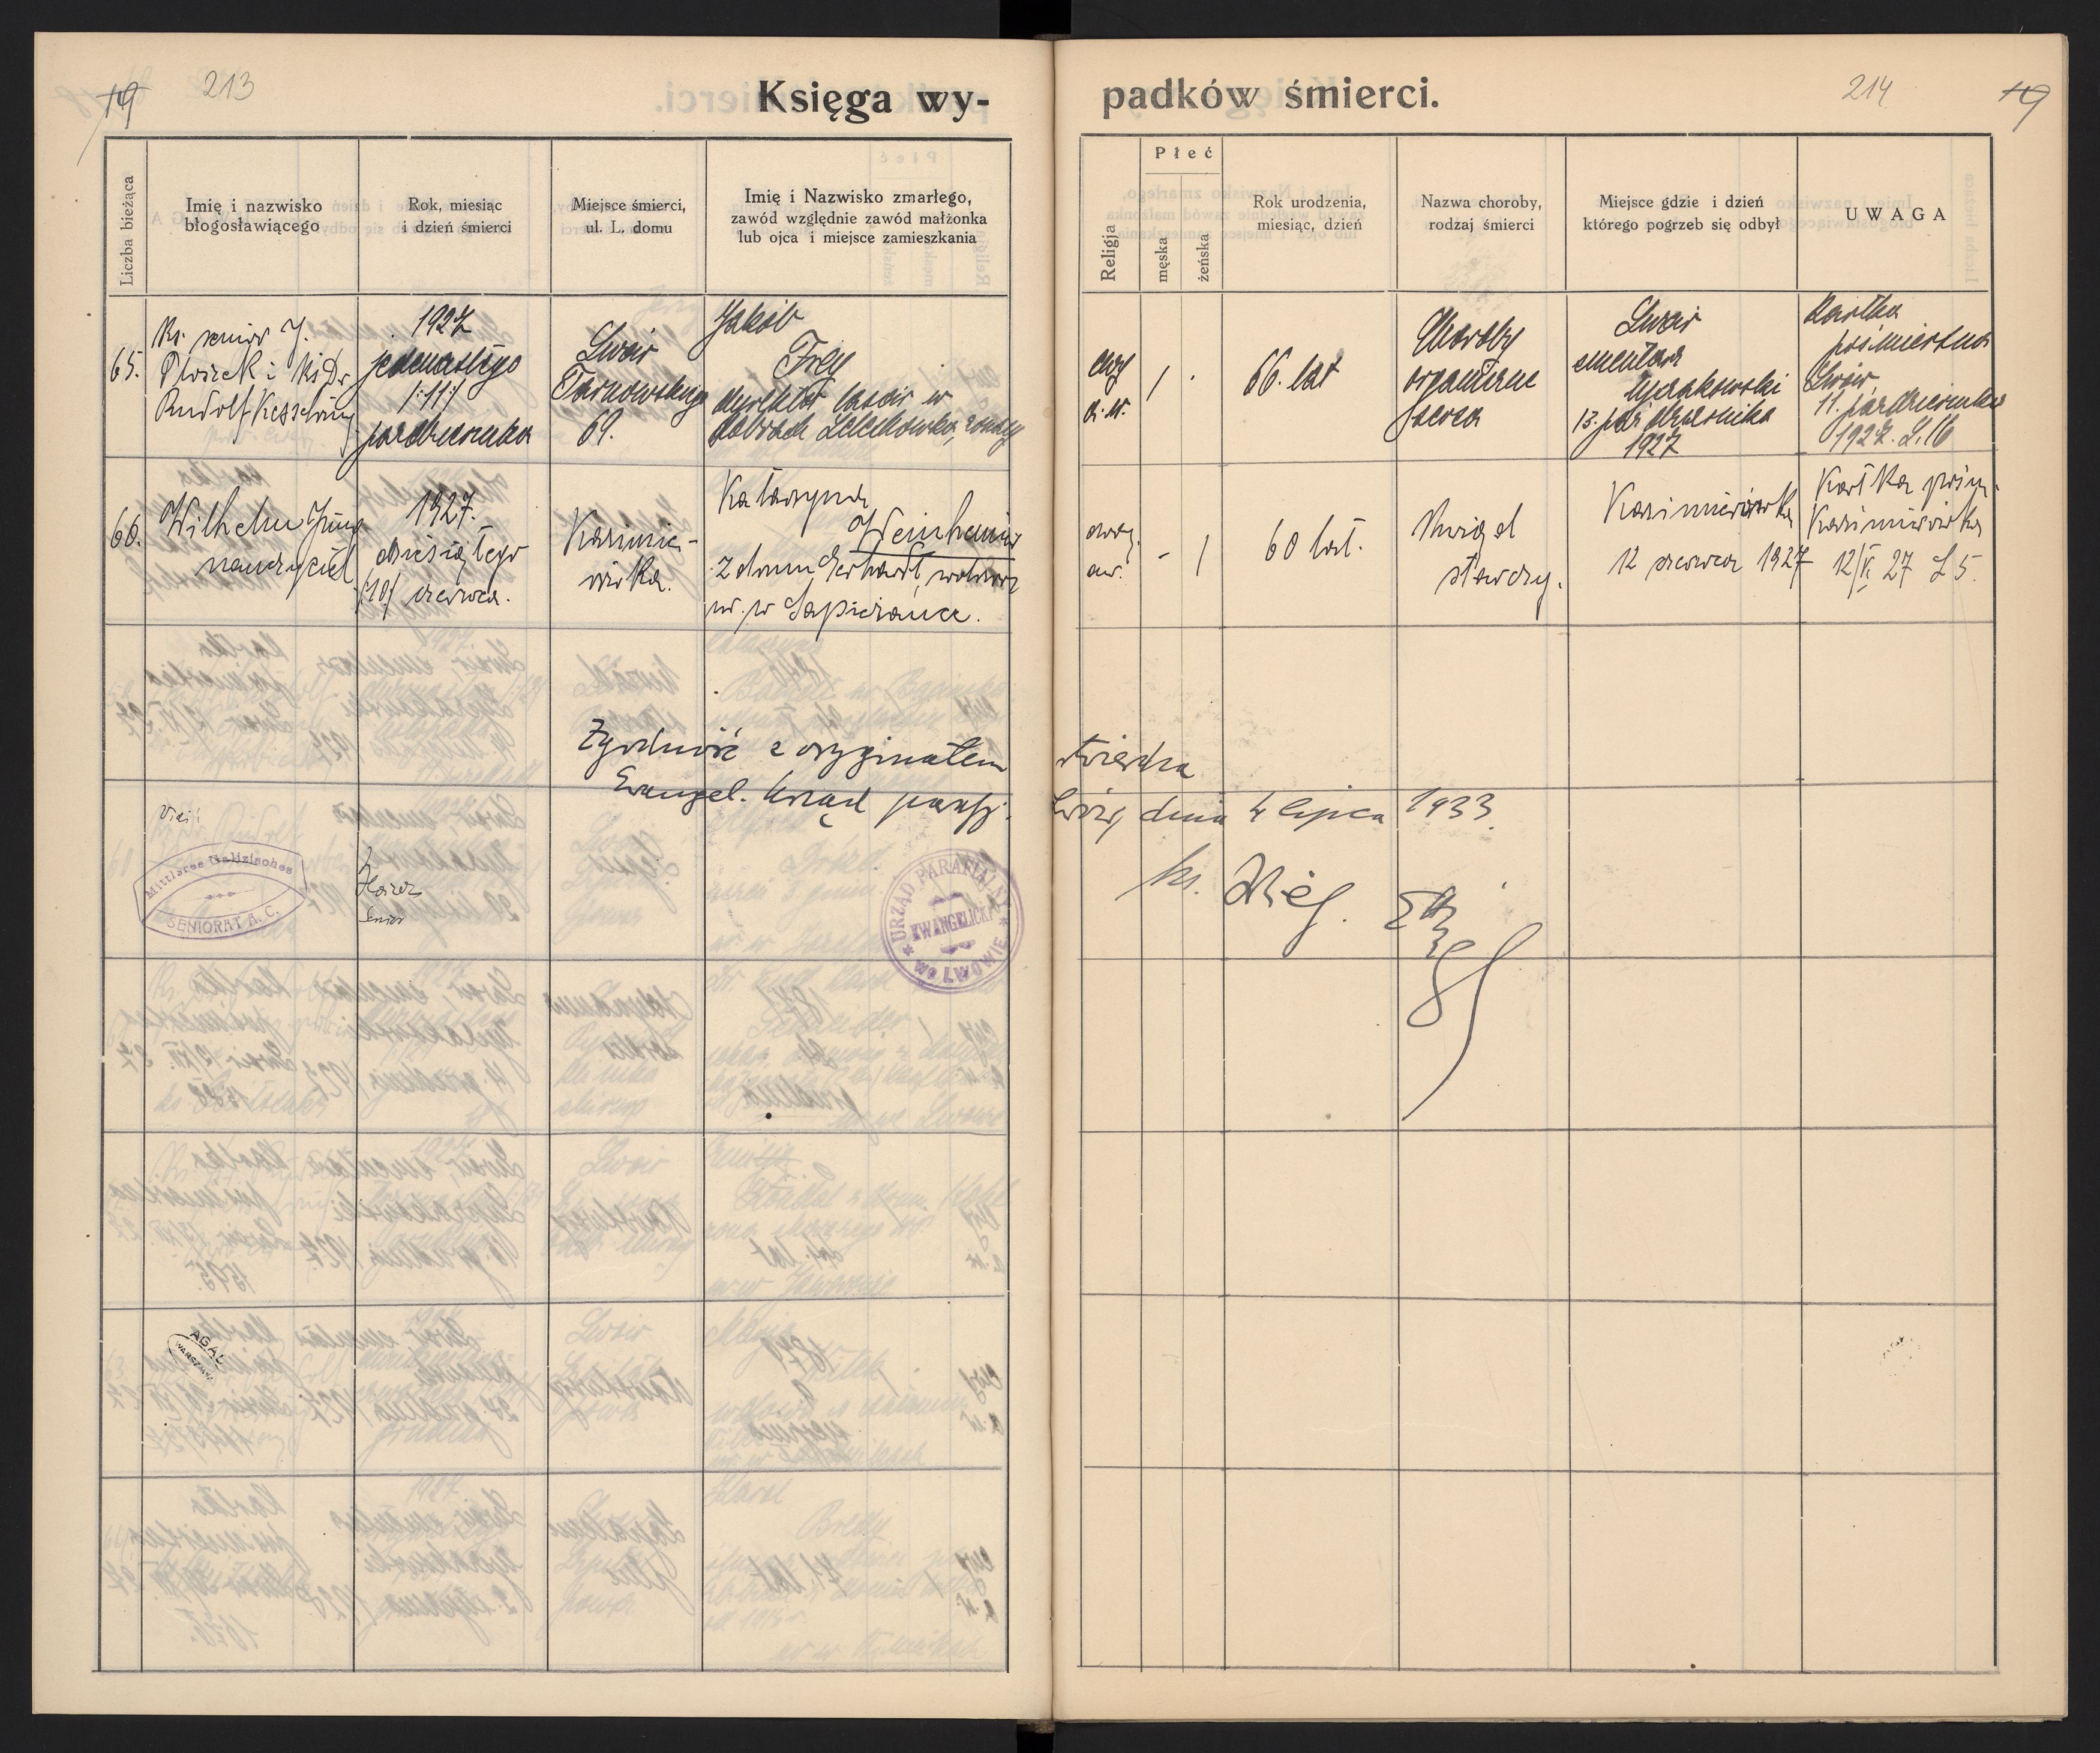 19 213
Księga wy-
padków śmierci.
214 19
Liczba bieżąca
Imię i nazwisko
błogosławiącego
Rok, miesiąc
i dzień śmierci
Miejsce śmierci,
ul. L. domu
Imię i Nazwisko zmarłego,
zawód względnie zawód małżonka
lub ojca i miejsce zamieszkania
Religja
Płeć
męska
żeńska
Rok urodzenia,
miesiąc, dzień
Nazwa choroby,
rodzaj śmierci
Miejsce gdzie i dzień
którego pogrzeb się odbył
UWAGA
65.
Ks. senior J.
i Ks. Dr
Rudolf Kesselring
1927
jedenastego
/:11:/
października
Lwów
Tarnowskiego
69.
Jakób
Frey
dyrektor lasów w
dobrach
a. w.
/
66. lat
Choroby
organiczne
serca
Lwów
cmentarz
Łyczakowski
13. października
1927
Kartka
pośmiertna
Lwów,
11. października
1927. L. 16
66.
Wilhelm Jung
nauczyciel
1927.
dziesiątego
/10/ czerwca.
Kazimie-
rówka.
Katarzyna
Weinheimer
z domu Gerhardt, wdowa
ur. w Sapieżance.
ewg.
aw.
- /
60 lat.
Uwiąd
starczy.
Kazimierówka
12 czerwca 1927
Kartka pośm.
Kazimierówka
12/V 27 L 5.
Zgodność z oryginałem
stwierdza
Ewangel. Urząd paraf.
Lwów, dnia 4 lipca 1933.
ks.
Vidi:
Mittleres Galizisches
SENIORAT A. C.
Senior
URZĄD PARAFIALNY
EWANGELICKI
WO LWOWIE
AGAD
WARSZAWA